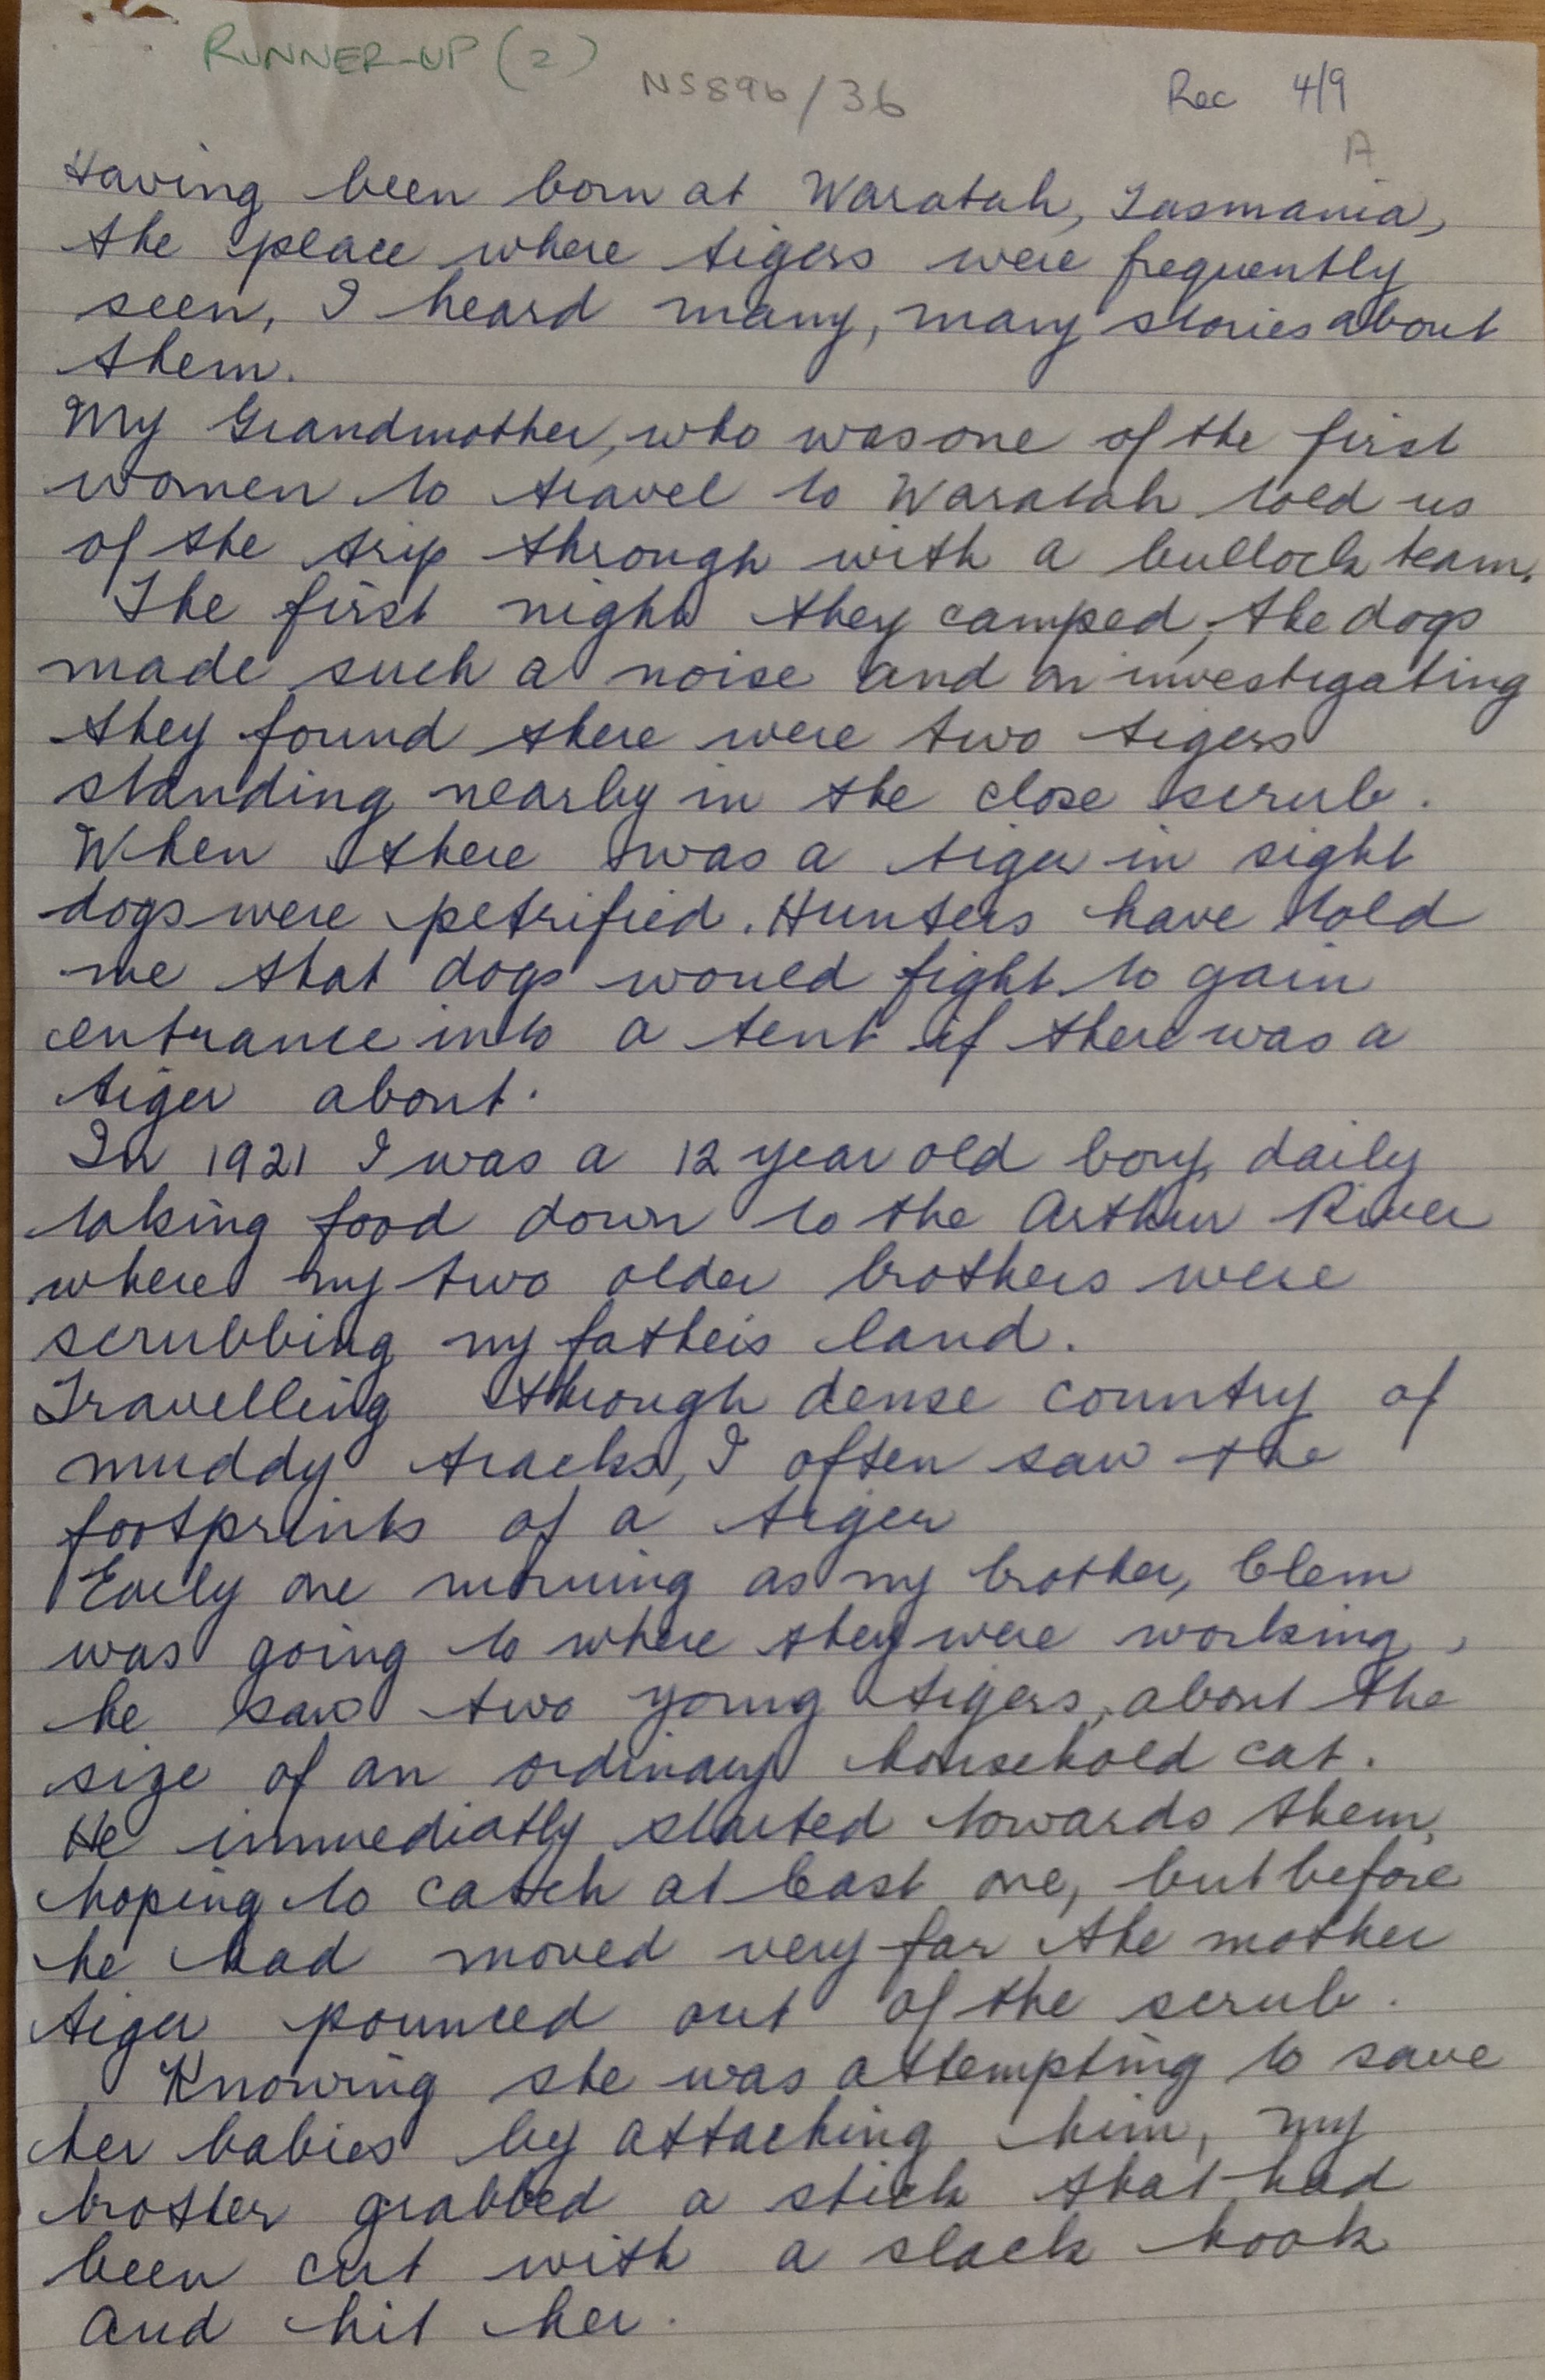 RUNNER-UP (2)
NS896/36
Rec 4/9
A
Having been born at Waratah, Tasmania,
the place where tigers were frequently
seen, I heard many, many stories about
them.
My Grandmother, who was one of the first
women to travel to Waratah told us
of the trip through with a bullock team.
The first night they camped, the dogs
made such a noise and on investigating
they found there were two tigers
standing nearby in the close scrub.
When there was a tiger in sight
dogs were petrified. Hunters have told
me that dogs would fight to gain
entrance into a tent if there was a
tiger about.
In 1921 I was a 12 year old boy, daily
taking food down to the Arthur River
where my two older brothers were
scrubbing my father's land.
Travelling through dense country of
muddy tracks, I often saw the
footprints of a tiger
Early one morning as my brother, Clem
was going to where they were working,
he saw two young tigers, about the
size of an ordinary household cat.
He immediatly started towards them,
hoping to catch at least one, but before
he had moved very far the mother
tiger pounced out of the scrub.
Knowing she was attempting to save
her babies by attacking him, my
brother grabbed a stick that had
been cut with a slack hook
and hit her.